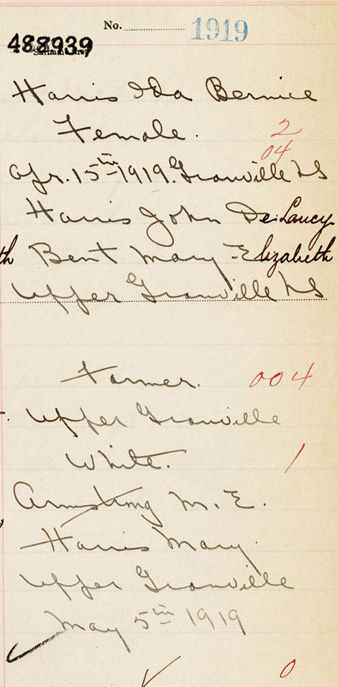 No. 1919
488939
Harris Ida Bernice
Female. 2
04
Apr. 15th 1919. Granville NS
Harris John DeLancy
th Bent Mary Elizabeth
Upper Granville NS
Farmer. 004
Upper Granville
White. 1
Armstrong M. E.
Harris Mary.
Upper Granville
May 5th 1919
0